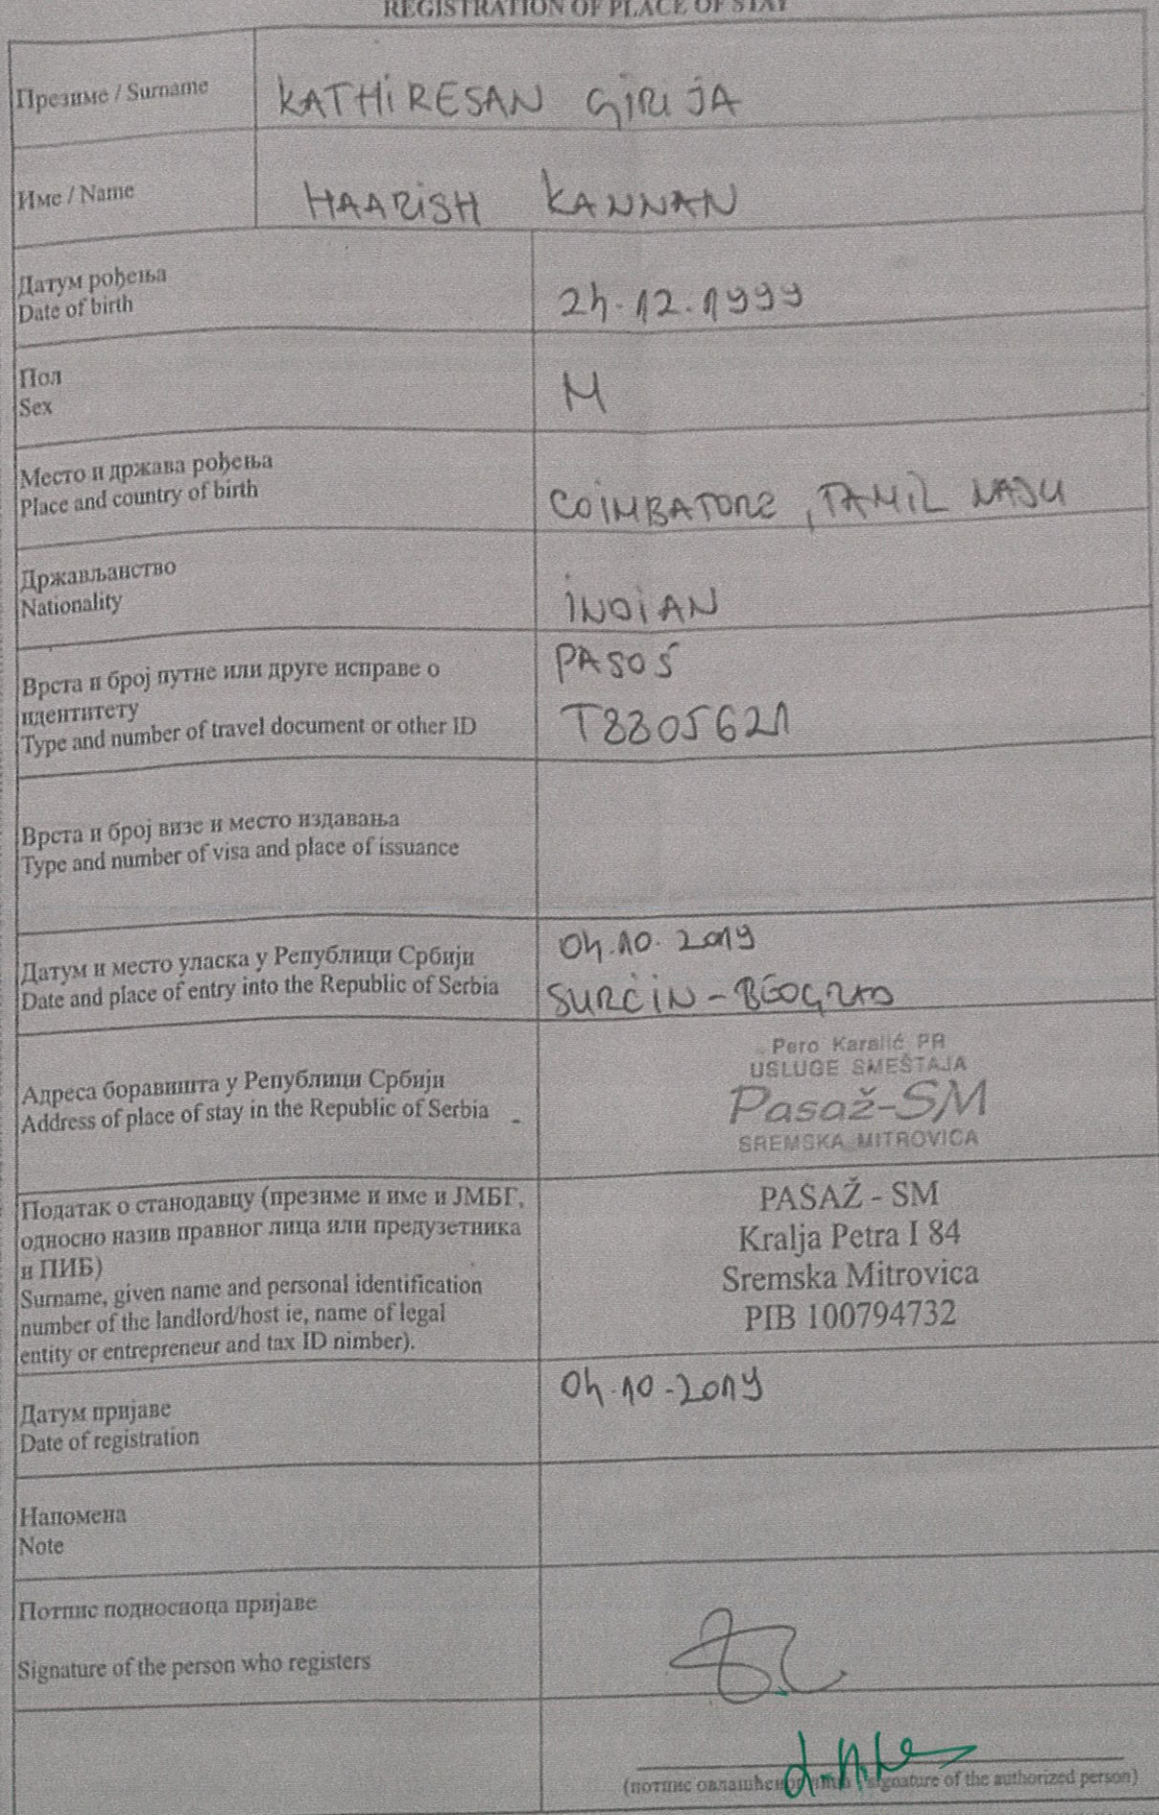 REGISTRATION OF PLACE OF STAY
Презиме / Surname
KATHIRESAN GIRIJA
Име / Name
HAARISH KANNAN
Датум рођења
Date of birth
24.12.1999
Пол
Sex
M
Место и држава рођења
Place and country of birth
COIMBATORE, TAMIL NADU
Држављанство
Nationality
INDIAN
Врста и број путне или друге исправе о
идентитету
Type and number of travel document or other ID
PASOŠ
T8305621
Врста и број визе и место издавања
Type and number of visa and place of issuance
Датум и место уласка у Републици Србији
Date and place of entry into the Republic of Serbia
04.10.2019
SURČIN - BEOGRAD
Адреса боравишта у Републици Србији
Address of place of stay in the Republic of Serbia
Pero Karalić PR
USLUGE SMEŠTAJA
Pasaž-SM
SREMSKA MITROVICA
Податак о станодавцу (презиме и име и ЈМБГ,
односно назив правног лица или предузетника
и ПИБ)
Surname, given name and personal identification
number of the landlord/host ie, name of legal
entity or entrepreneur and tax ID nimber).
PASAŽ - SM
Kralja Petra I 84
Sremska Mitrovica
PIB 100794732
Датум пријаве
Date of registration
04.10-2019
Напомена
Note
Потпис подносиоца пријаве
Signature of the person who registers
(потпис овлашћеног лица / signature of the authorized person)